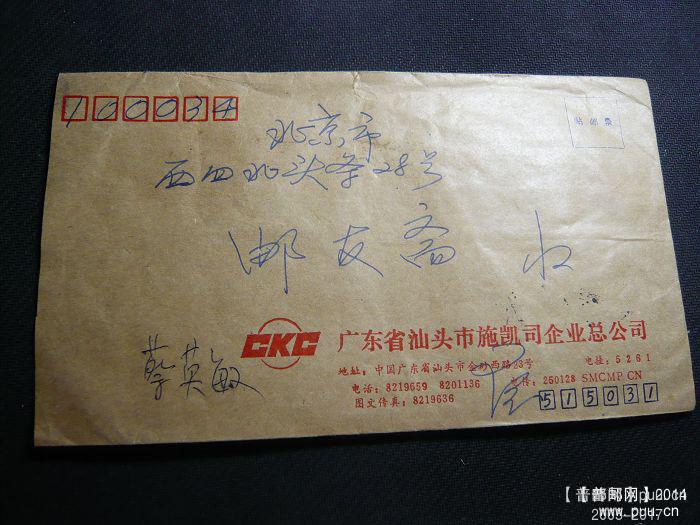 100034
贴邮票
北京市
西四北头条28号
邮友斋 收
CKC 广东省汕头市施凯司企业总公司
地址:中国广东省汕头市金砂西路23号 电挂:5261
电话:8219659 8201136 电传:250128 SMCMP CN
图文传真:8219636
蔡英敏
515031
www.puu.cn